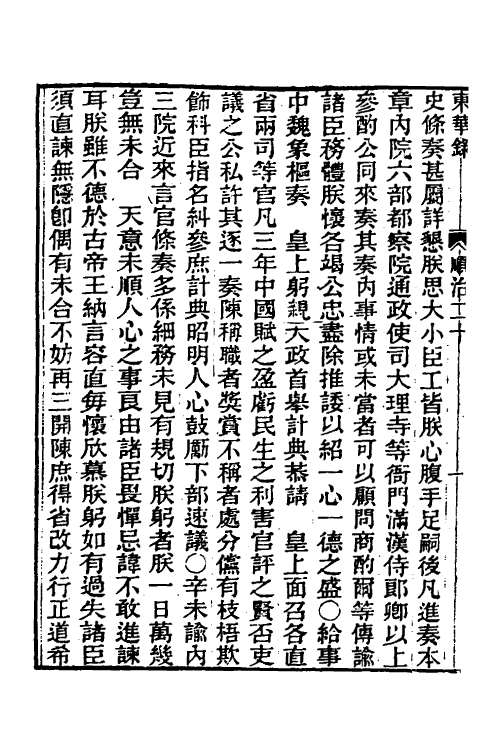 東華錄 順治二十 一
史條奏甚屬詳懇朕思大小臣工皆朕心腹手足嗣後凡進奏本
章內院六部都察院通政使司大理寺等衙門滿漢侍郞卿以上
參酌公同來奏其奏內事情或未當者可以顧問商酌爾等傳諭
諸臣務體朕懷各竭公忠盡除推諉以紹一心一德之盛〇給事
中魏象樞奏 皇上躬親大政首舉計典恭請 皇上面召各直
省兩司等官凡三年中國賦之盈虧民生之利害官評之賢否吏
議之公私許其逐一奏陳稱職者獎賞不稱者處分儻有枝梧欺
飾科臣指名糾參庶計典昭明人心鼓勵下部速議〇辛未諭內
三院近來言官條奏多係細務未見有規切朕躬者朕一日萬幾
豈無未合 天意未順人心之事良由諸臣畏憚忌諱不敢進諫
耳朕雖不德於古帝王納言容直每懷欣慕朕躬如有過失諸臣
須直諫無隱卽偶有未合不妨再三開陳庶得省改力行正道希